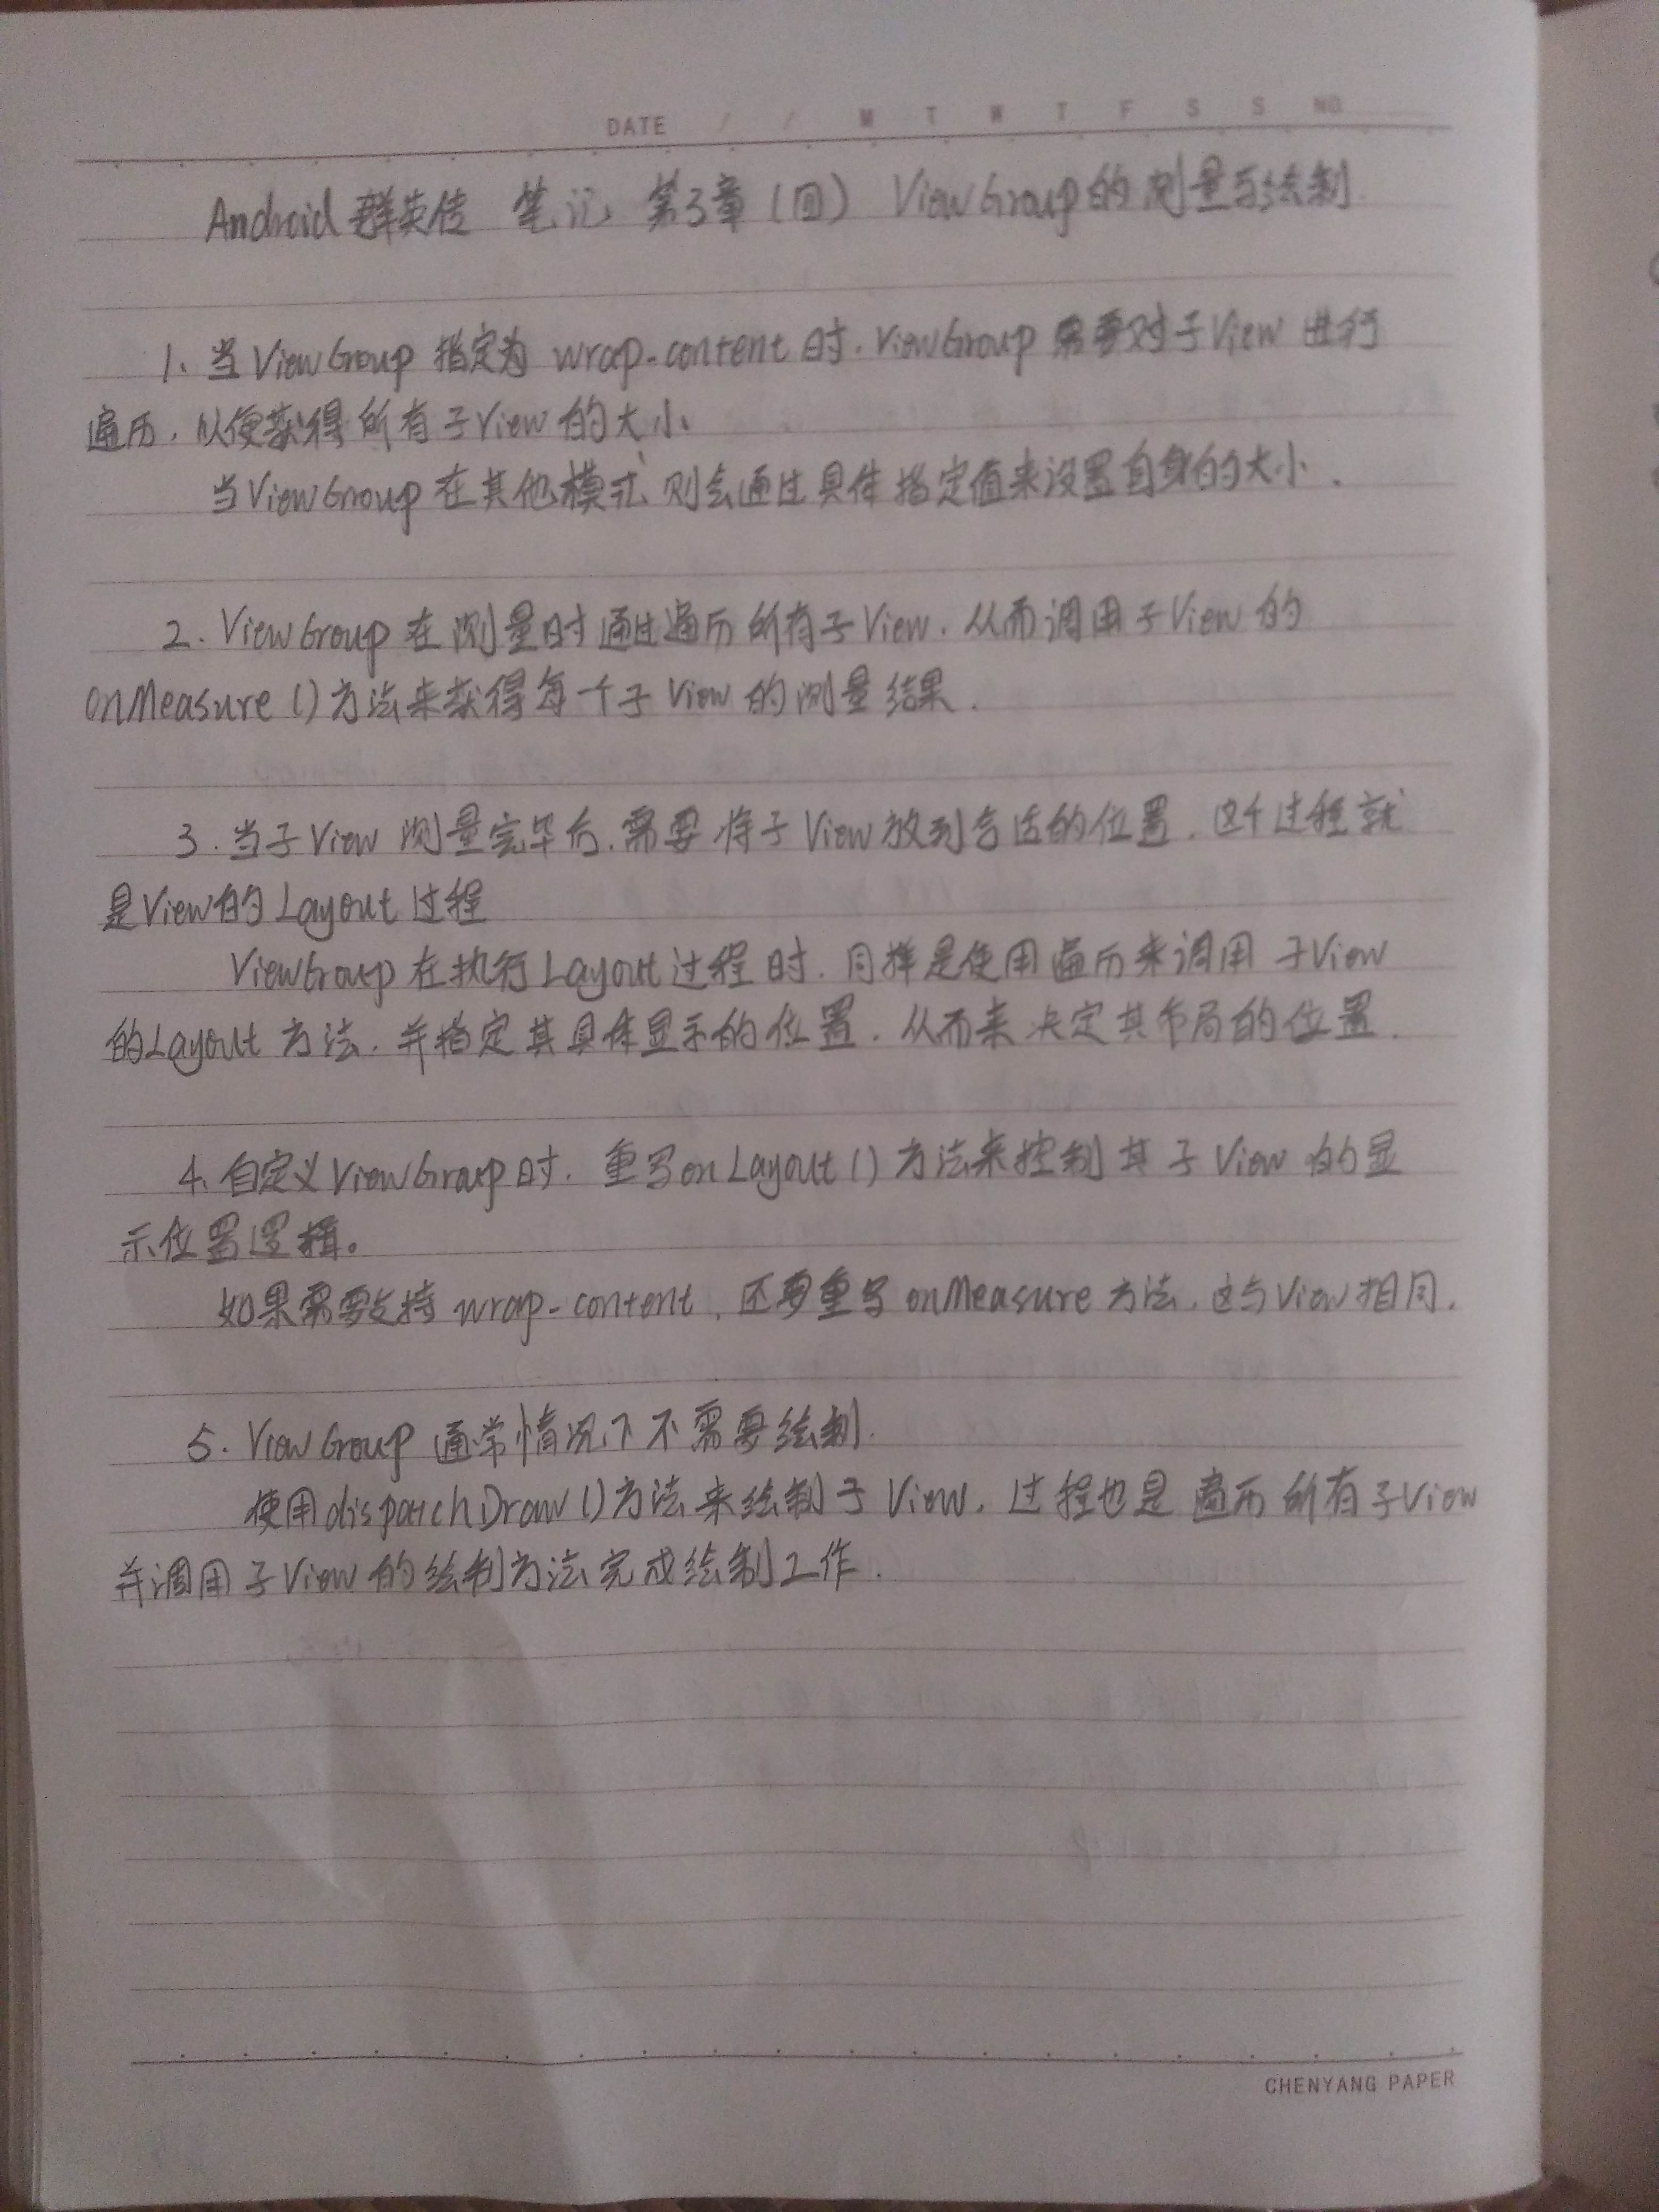 DATE / / M T W T F S S NO
Android群英传 笔记 第3章(四) ViewGroup的测量与绘制
1、当ViewGroup 指定为 wrap-content时.ViewGroup需要对子View 进行
遍历.以便获得所有子View的大小、
当ViewGroup在其他模式 则会通过具体指定值来设置自身的大小.
2.ViewGroup在测量时通过遍历所有子View.从而调用子View的
onMeasure()方法来获得每一个子View的测量结果.
3.当子View测量完毕后.需要将子View放到合适的位置.这个过程就
是View的Layout过程
ViewGroup在执行Layout过程时.同样是使用遍历来调用子View
的Layout方法.并指定其具体显示的位置.从而来决定其布局的位置.
4、自定义ViewGroup时.重写onLayout()方法来控制其子View的显
示位置逻辑。
如果需要支持wrap-content,还要重写onMeasure方法.这与View相同.
5.ViewGroup通常情况下不需要绘制.
使用dispatchDraw()方法来绘制子View.过程也是遍历所有子View
并调用子View的绘制方法完成绘制工作.
CHENYANG PAPER